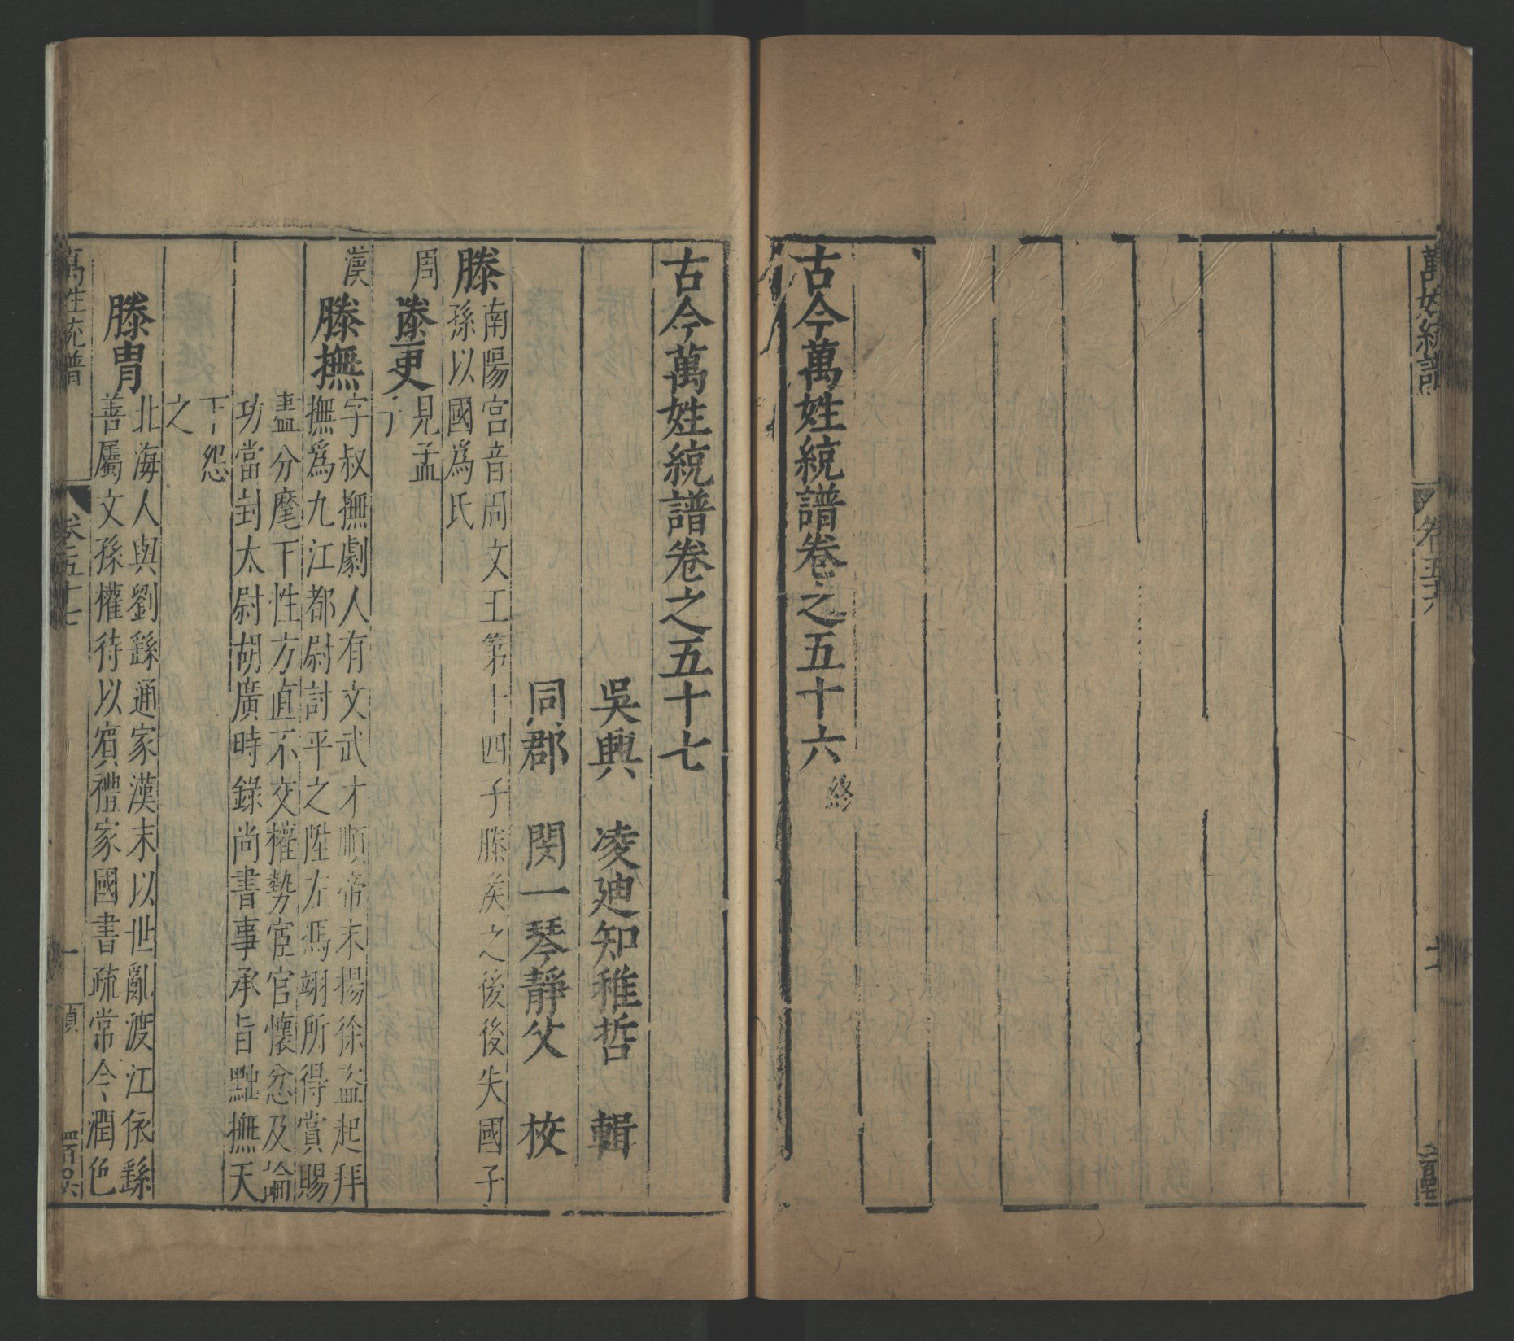 古今萬姓統譜卷之五十六 終
古今萬姓統譜卷之五十七
吳興 凌廸知稚哲 輯
同郡 閔一琴靜父 校
滕 南陽宮音周文王第十四子滕矦之後後失國子
孫以國爲氏
周 滕更 見孟
子
漢 滕撫 字叔撫劇人有文武才順帝末揚徐盜起拜
撫爲九江都尉討平之陞左馮翊所得賞賜
盡分麾下性方直不交權勢宦官懷忿及論
功當封太尉胡廣時錄尚書事承旨黜撫天
下怨
之
滕冑 北海人與劉繇通家漢末以世亂渡江依繇
善屬文孫權待以賓禮家國書疏常令潤色
萬姓統譜 卷五十七 一
萬姓統譜 卷五十六